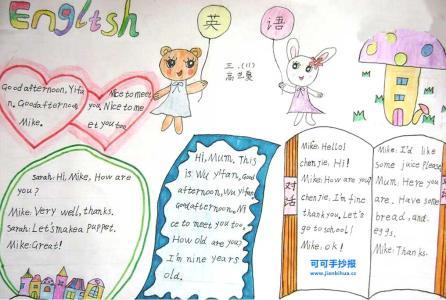 English
英 语
三、(1)
Good afternoon, Yifa
n. Good afternoon,
Mike.
Nice to meet
you. Nice to me
et you too.
Sarah: Hi, Mike, How are
you?
Mike: Very well, thanks.
Sarah: Let's make a puppet.
Mike: Great!
Hi, Mum. This
is Wu Yifan, Good
afternoon, Wu Yifan,
Good afternoon. Ni
ce to meet you too.
How old are you?
I'm nine years
old.
对话
Mike: Hello!
chenjie, Hi!
Mike: How are you?
chenjie, I'm fine
thank you. Let's
go to school!
Mike: ok!
对话
Mike: I'd like
some juice Please
Mum, Here you
are, Have some
bread, and
eggs.
Mike: Thanks.
可可手抄报
www.jianbihua.cc